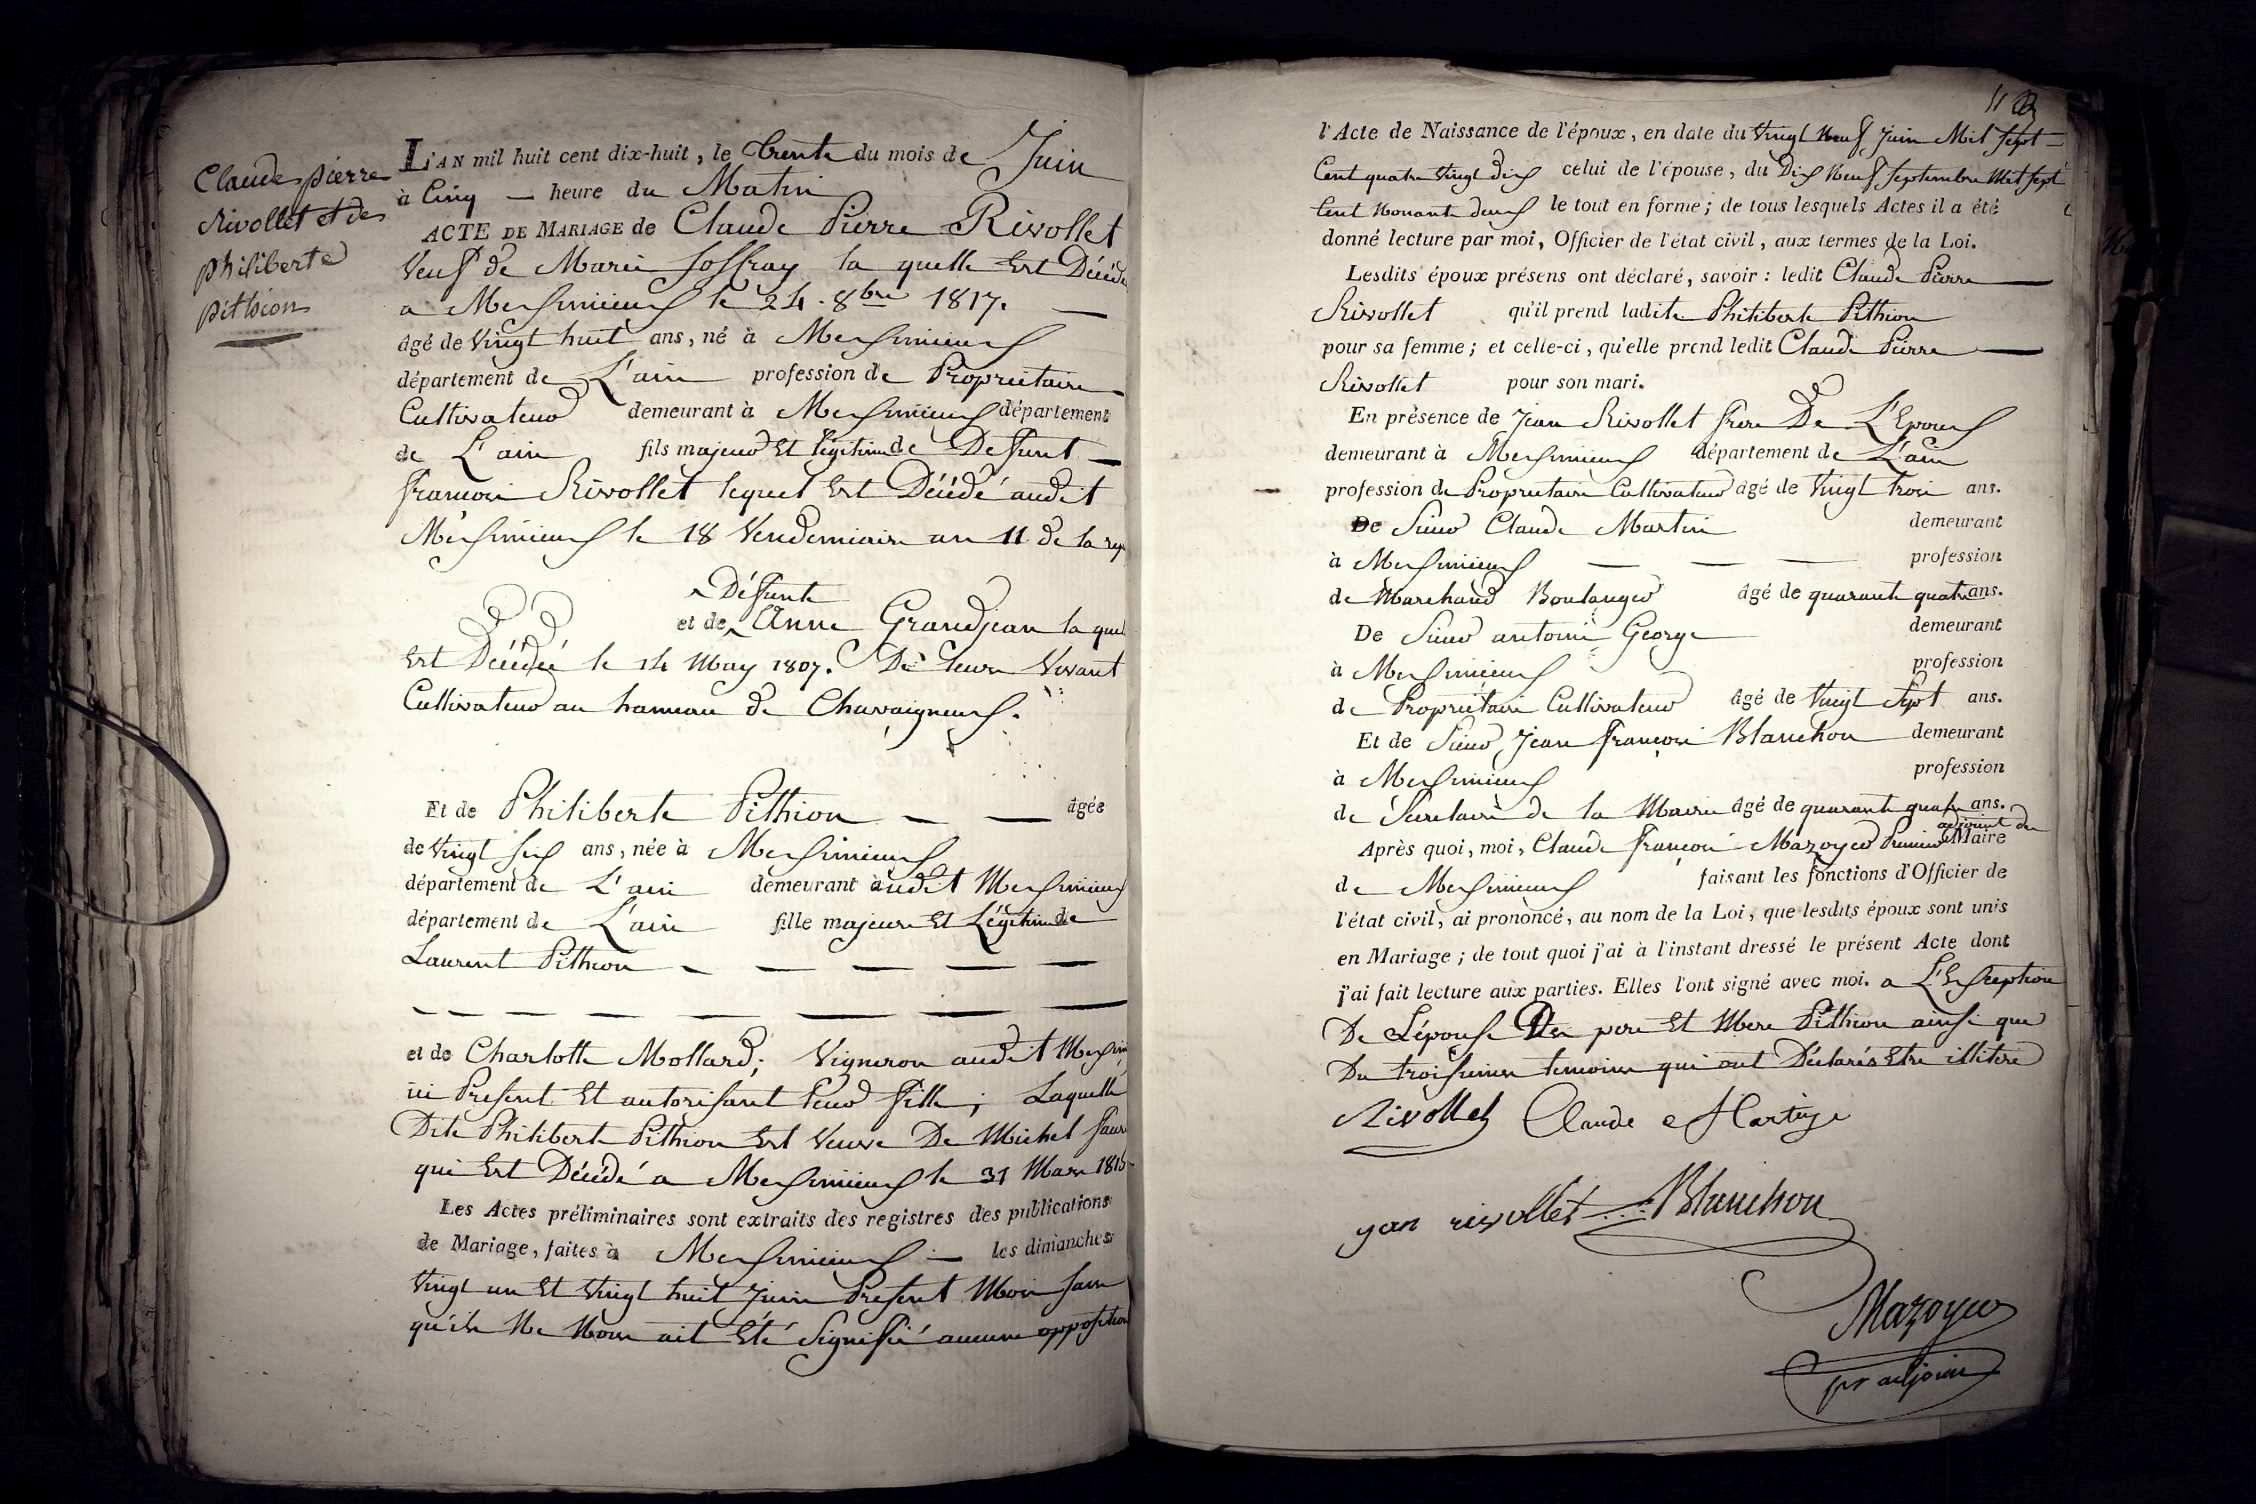 Claude pierre
Rivollet et de
philiberte
pithion
L'AN mil huit cent dix-huit, le trente du mois de Juin
à Cinq — heure du Matin
ACTE DE MARIAGE de Claude Pierre Rivollet
Veuf de Marie Joffray la quelle Est Décédée
a Messimieux le 24. 8bre 1817. —
âgé de Vingt huit ans, né à Messimieux
département de L'ain profession de Proprietaire
Cultivateur demeurant à Messimieux département
de L'ain fils majeur Et légitime de Deffunt —
francois Rivollet lequel Est Décédé audit
Messimieux le 18 Vendemiaire an 11 de la rep
Défunte
et de Anne Grandjean la quel
Est Décédée le 14 May 1807. De leurs Vivant
Cultivateur au hameau de Chavaigneux.
Et de Philiberte Pithion — — âgée
de Vingt six ans, née à Messimieux
département de L'ain demeurant audit Messimieux
département de L'ain fille majeure Et Légitime de
Laurent Pithion — — — — —
— — — — — — —
et de Charlotte Mollard; Vigneron audit Messim
ici Present Et autorisant leur fille; Laquelle
Dite Philiberte Pithion Est Veuve De Michel faure
qui Est Décédé a Messimieux le 31 Mars
Les Actes préliminaires sont extraits des registres des publications
de Mariage, faites à Messimieux — les dimanches
Vingt un Et Vingt huit Juin Present Mois sans
qu'il Ne Nous ait Eté Signiffié aucune opposition
l'Acte de Naissance de l'époux, en date du Vingt Neuf Juin Mil Sept
Cent quatre Vingt dix celui de l'épouse, du Dix Neuf Septembre Mil Sept
Cent Nonante deux le tout en forme; de tous lesquels Actes il a été
donné lecture par moi, Officier de l'état civil, aux termes de la Loi.
Lesdits époux présens ont déclaré, savoir: ledit Claude Pierre —
Rivollet qu'il prend ladite Philiberte Pithion
pour sa femme; et celle-ci, qu'elle prend ledit Claude Pierre —
Rivollet pour son mari.
En présence de Jean Rivollet frere De L'Epoux
demeurant à Messimieux département de L'ain
profession de Proprietaire Cultivateur âgé de Vingt trois ans.
De Sieur Claude Martin demeurant
à Messimieux — — — profession
de Marchand Boulanger âgé de quarante quatre ans.
De Sieur antoine George demeurant
à Messimieux profession
de Proprietaire Cultivateur âgé de Vingt Sept ans.
Et de Sieur Jean francois Blanchon demeurant
à Messimieux profession
de Secretaire de la Mairie âgé de quarante quatre ans.
adjoint du
Après quoi, moi, Claude francois Mazoyer Premier Maire
de Messimieux faisant les fonctions d'Officier de
l'état civil, ai prononcé, au nom de la Loi, que lesdits époux sont unis
en Mariage; de tout quoi j'ai à l'instant dressé le présent Acte dont
j'ai fait lecture aux parties. Elles l'ont signé avec moi. a L'Exseption
De L'épouse Des pere Et Mere Pithion ainsi que
Du troisieme temoins qui ont Déclarés Etre illitere
Rivollet Claude Martin
jan rivollet Blanchon
Mazoyer
pr adjoin